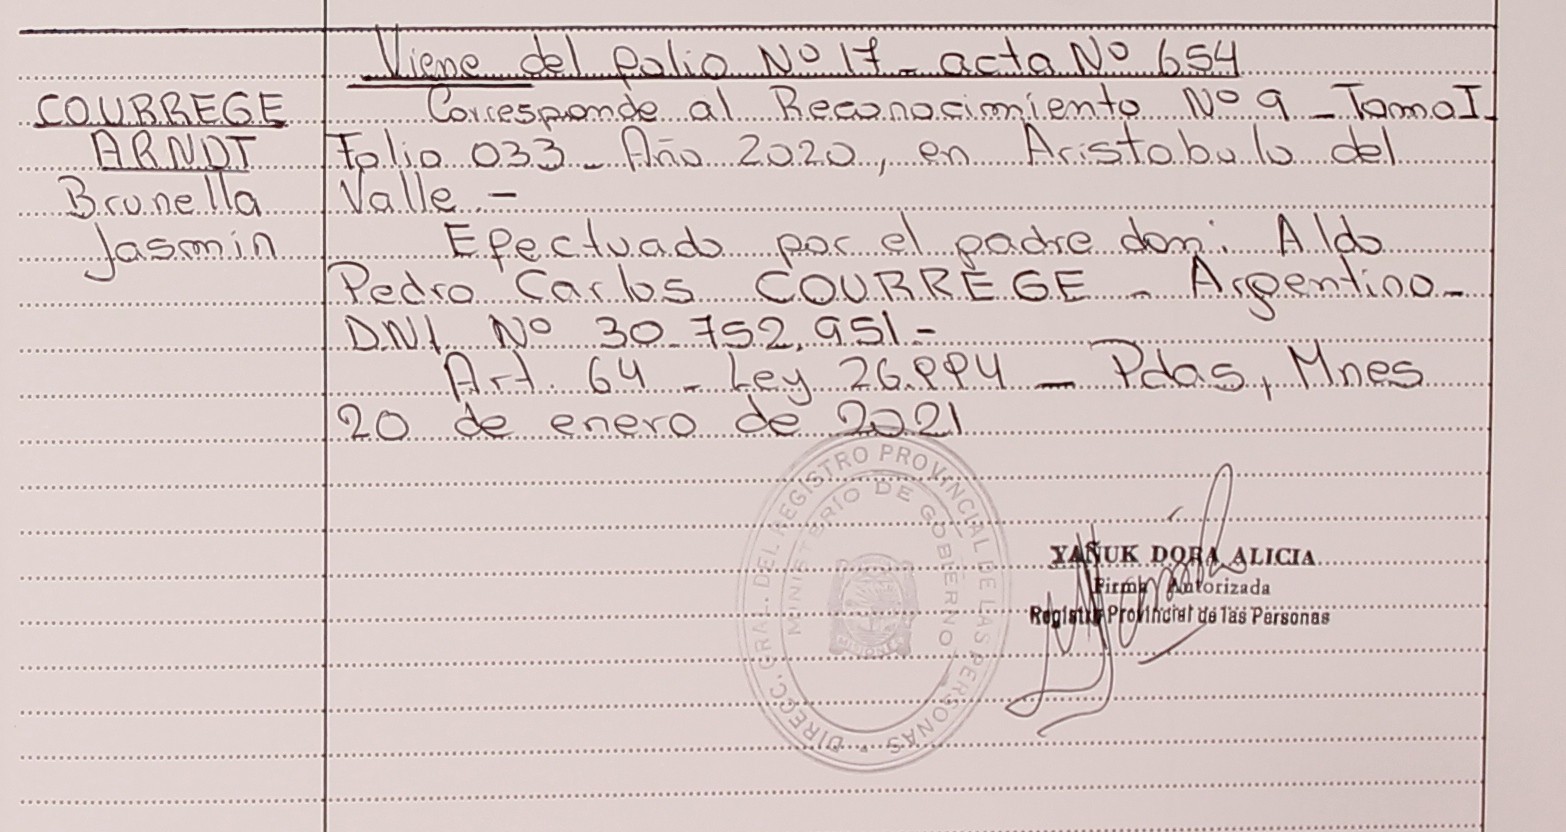 Viene del folio Nº 17 - acta Nº 654
COURREGE
ARNDT
Brunella
Jasmin
Corresponde al Reconocimiento Nº 9 - Tomo I
Folio 033 - Año 2020, en Aristobulo del
Valle.-
Efectuado por el padre don: Aldo
Pedro Carlos COURREGE - Argentino-
DNI Nº 30.752.951.-
Art. 64 - Ley 26.994 - Pdas, Mnes
20 de enero de 2021
DIRECC. GRAL. DEL REGISTRO PROVINCIAL DE LAS PERSONAS
MINISTERIO DE GOBIERNO
MISIONES
YAÑUK DORA ALICIA
Firma Autorizada
Registro Provincial de las Personas